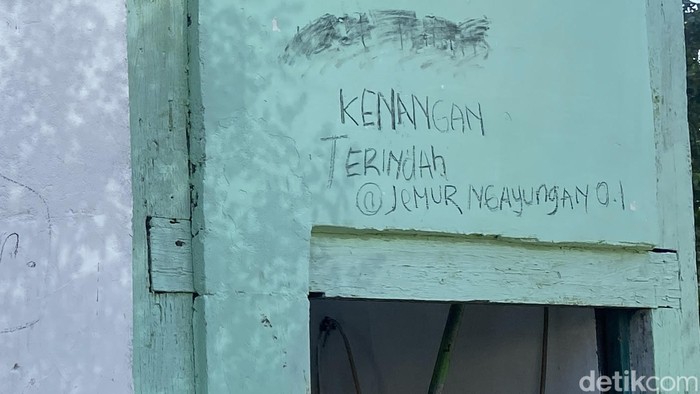 KENANGAN
TERINDAH
@JEMUR NGAYUNGAN 0.1
detikcom